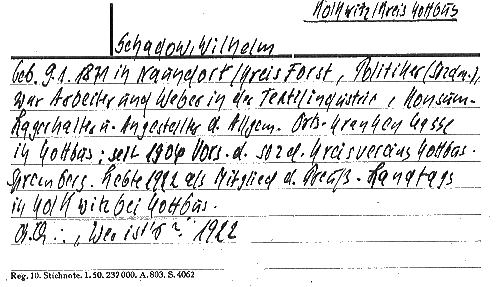 Kolkwitz/Kreis Cottbus
Schadow, Wilhelm
geb. 9.1.1871 in Naundorf/Kreis Forst, Politiker (Sozdm.),
war Arbeiter und Weber in der Textilindustrie, Konsum-
Lagerhalter u. Angestellter d. Allgem. Orts-Krankenkasse
in Cottbus; seit 1904 Vors. d. sozd. Kreisvereins Cottbus-
Spremberg. Lebte 1922 als Mitglied d. Preuß. Landtags
in Kolkwitz bei Cottbus.
"Wer ist's?" 1922
Reg. 10. Stichnote. 1. 50. 237000. A. 803. S. 4062